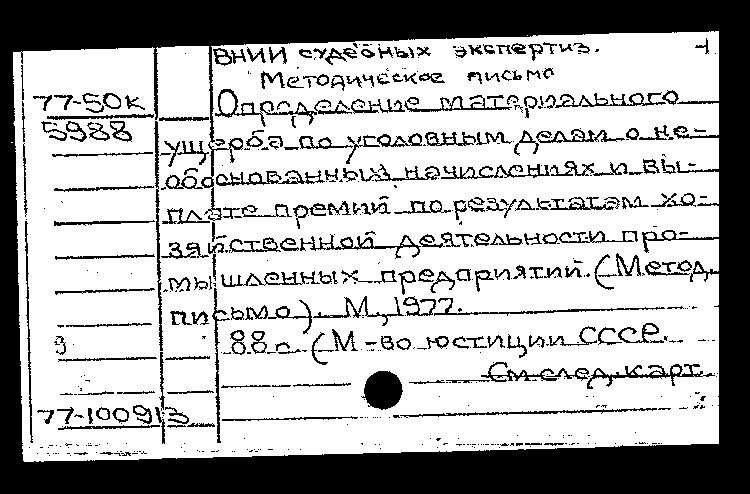 ВНИИ судебных экспертиз. 1
Методическое письмо
77-50к Определение материального
5988 ущерба по уголовным делам о не-
обоснованных начислениях и вы-
плате премий по результатам хо-
зяйственной деятельности про-
мышленных предприятий. (Метод.
письмо). М., 1977.
9 88 с. (М-во юстиции СССР.
См след. карт.
77-100913